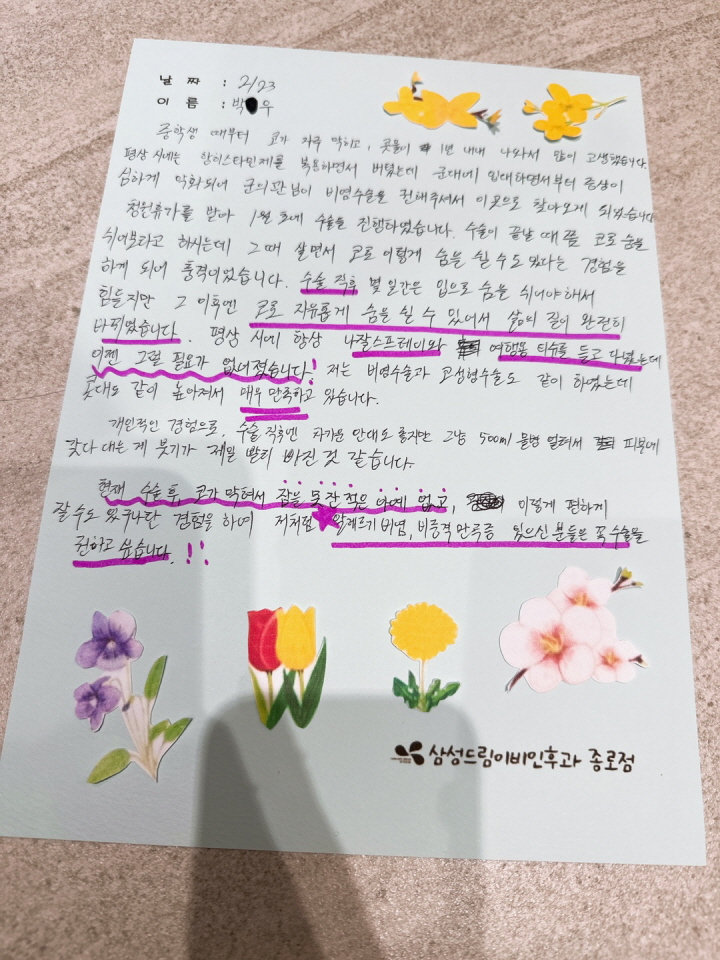 날 짜 : 2/23
이 름 : 박 우
중학생 때부터 코가 자주 막히고, 콧물이 1년 내내 나와서 많이 고생했습니다.
평상 시에는 항히스타민제를 복용하면서 버텼는데 군대에 입대하면서부터 증상이
심하게 악화되어 군의관님이 비염수술을 권해주셔서 이곳으로 찾아오게 되었습니다
청원휴가를 받아 1월 초에 수술을 진행하였습니다. 수술이 끝날 때쯤 코로 숨을
쉬어보라고 하시는데 그때 살면서 코로 이렇게 숨을 쉴 수도 있다는 경험을
하게 되어 충격이었습니다. 수술 직후 몇 일간은 입으로 숨을 쉬어야해서
힘들지만 그 이후엔 코로 자유롭게 숨을 쉴 수 있어서 삶의 질이 완전히
바뀌었습니다. 평상 시에 항상 나잘스프레이와 여행용 티슈를 들고 다녔는데
이젠 그럴 필요가 없어졌습니다! 저는 비염수술과 코성형수술도 같이 하였는데
콧대도 같이 높아져서 매우 만족하고 있습니다.
개인적인 경험으로, 수술 직후엔 차가운 안대도 좋지만 그냥 500ml 물병 얼려서 피부에
갖다 대는 게 붓기가 제일 빨리 빠진 것 같습니다.
현재 수술 후 코가 막혀서 잠을 못 잔 적은 아예 없고, 이렇게 편하게
잘 수도 있구나란 경험을 하여 저처럼 알레르기 비염, 비중격 만곡증 있으신 분들은 꼭 수술을
권하고 싶습니다.!!
삼성드림이비인후과 종로점